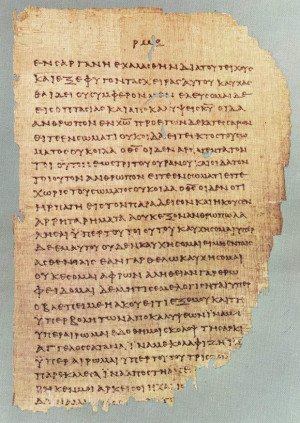 ΕΝ ΣΑΡΓΑΝΗ ΕΧΑΛΑΣΘΗΝ ΔΙΑ ΤΟΥ ΤΕΙΧΟΥΣ
ΚΑΙ ΕΞΕΦΥΓΟΝ ΤΑΣ ΧΕΙΡΑΣ ΑΥΤΟΥ ΚΑΥΧΑΣ
ΘΑΙ ΔΕΙ ΟΥ ΣΥΜΦΕΡΟΝ ΜΕΝ ΕΛΕΥΣΟΜΑΙ ΔΕ
ΕΙΣ ΟΠΤΑΣΙΑΣ ΚΑΙ ΚΥ ΟΙΔΑ
ΑΝΘΡΩΠΟΝ ΕΝ ΧΡΩ ΠΡΟ ΕΤΩΝ ΔΕΚΑΤΕΣΣΑΡΩΝ
ΕΙΤΕ ΕΝ ΣΩΜΑΤΙ ΟΥΚ ΟΙΔΑ ΕΙΤΕ ΕΚΤΟΣ ΤΟΥ ΣΩ
ΜΑΤΟΣ ΟΥΚ ΟΙΔΑ Ο ΘΣ ΟΙΔΕΝ ΑΡΠΑΓΕΝΤΑ ΤΟΝ
ΕΩΣ ΤΡΙΤΟΥ ΟΥΡΑΝΟΥ ΚΑΙ ΟΙΔΑ ΤΟΝ
ΤΟΙΟΥΤΟΝ ΑΝΘΡΩΠΟΝ ΕΙΤΕ ΕΝ ΣΩΜΑΤΙ ΕΙΤΕ
ΧΩΡΙΣ ΤΟΥ ΣΩΜΑΤΟΣ ΟΥΚ ΟΙΔΑ Ο ΘΣ ΟΙΔΕΝ ΟΤΙ
ΗΡΠΑΓΗ ΕΙΣ ΤΟΝ ΠΑΡΑΔΕΙΣΟΝ ΚΑΙ ΗΚΟΥΣΕΝ
ΑΡΡΗΤΑ ΡΗΜΑΤΑ Α ΟΥΚ ΕΞΟΝ ΑΝΘΡΩΠΩ ΛΑ
ΛΗΣΑΙ ΥΠΕΡ ΤΟΥ ΤΟΙΟΥΤΟΥ ΚΑΥΧΗΣΟΜΑΙ ΥΠΕΡ
ΔΕ ΕΜΑΥΤΟΥ ΟΥΔΕΝ ΚΑΥΧΗΣΟΜΑΙ ΕΙ ΜΗ ΕΝ ΤΑΙΣ
ΑΣΘΕΝΕΙΑΙΣ ΕΑΝ ΓΑΡ ΘΕΛΩ ΚΑΥΧΗΣΟΜΑΙ
ΟΥΚ ΕΣΟΜΑΙ ΑΦΡΩΝ ΑΛΗΘΕΙΑΝ ΓΑΡ ΕΡΩ
ΦΕΙΔΟΜΑΙ ΔΕ ΜΗ ΤΙΣ ΕΜΕ ΛΟΓΙΣΗΤΑΙ ΥΠΕΡ
Ο ΒΛΕΠΕΙ ΜΕ Η ΑΚΟΥΕΙ ΤΙ ΕΞ ΕΜΟΥ ΚΑΙ ΤΗ
ΥΠΕΡΒΟΛΗ ΤΩΝ ΑΠΟΚΑΛΥΨΕΩΝ ΙΝΑ ΜΗ
ΥΠΕΡΑΙΡΩΜΑΙ ΕΔΟΘΗ ΜΟΙ ΣΚΟΛΟΨ ΤΗ ΣΑΡΚΙ
ΑΓΓΕΛΟΣ ΣΑΤΑΝΑ ΙΝΑ ΜΕ ΚΟΛΑΦΙΖΗ ΙΝΑ
ΥΠΕΡΑΙΡΩΜΑΙ ΥΠΕΡ ΤΟΥΤΟΥ ΤΡΙΣ ΤΟΝ
ΠΑΡΕΚΑΛΕΣΑ ΙΝΑ ΑΠΟΣΤΗ ΑΠ
ΜΟΙ ΑΡΚΕΙ ΣΟΙ Η ΧΑΡΙΣ